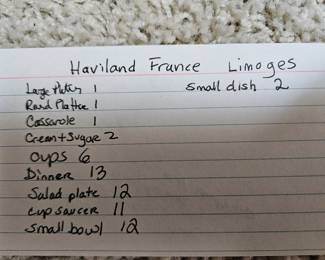 Haviland France Limoges
Large Platter 1
small dish 2
Round Platter 1
Casserole 1
Cream + Sugar 2
cups 6
Dinner 13
Salad plate 12
cup saucer 11
small bowl 12